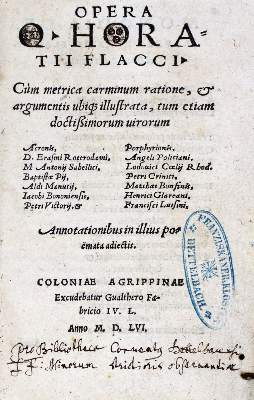 OPERA
Q. HORA-
TII FLACCI.
Cùm metrica carminum ratione, &
argumentis ubiq; illustrata, tum etiam
doctissimorum uirorum
Acronis,
D. Erasmi Roterodami,
M Antonij Sabellici,
Baptistæ Pij,
Aldi Manutij,
Iacobi Bononiensis,
Petri Victorij, &
Porphyrionis,
Angeli Politiani,
Ludouici Cœlij Rhod.
Petri Criniti,
Matthæi Bonfinis,
Henrici Glareani,
Francisci Luisini,
Annotationibus in illius poë-
mata adiectis.
COLONIAE AGRIPPINAE
Excudebatur Gualthero Fa-
bricio IV. L.
Anno M. D. LVI.
FRANZISKANERKLOSTER
DETTELBACH
pro Bibliotheca Conventus
FF: Minorum observantiæ